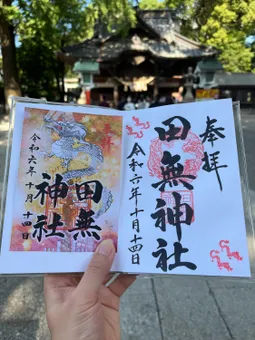 奉拝
田無神社
令和六年十月十四日
奉拝
田無
神社
令和六年
十月十四日